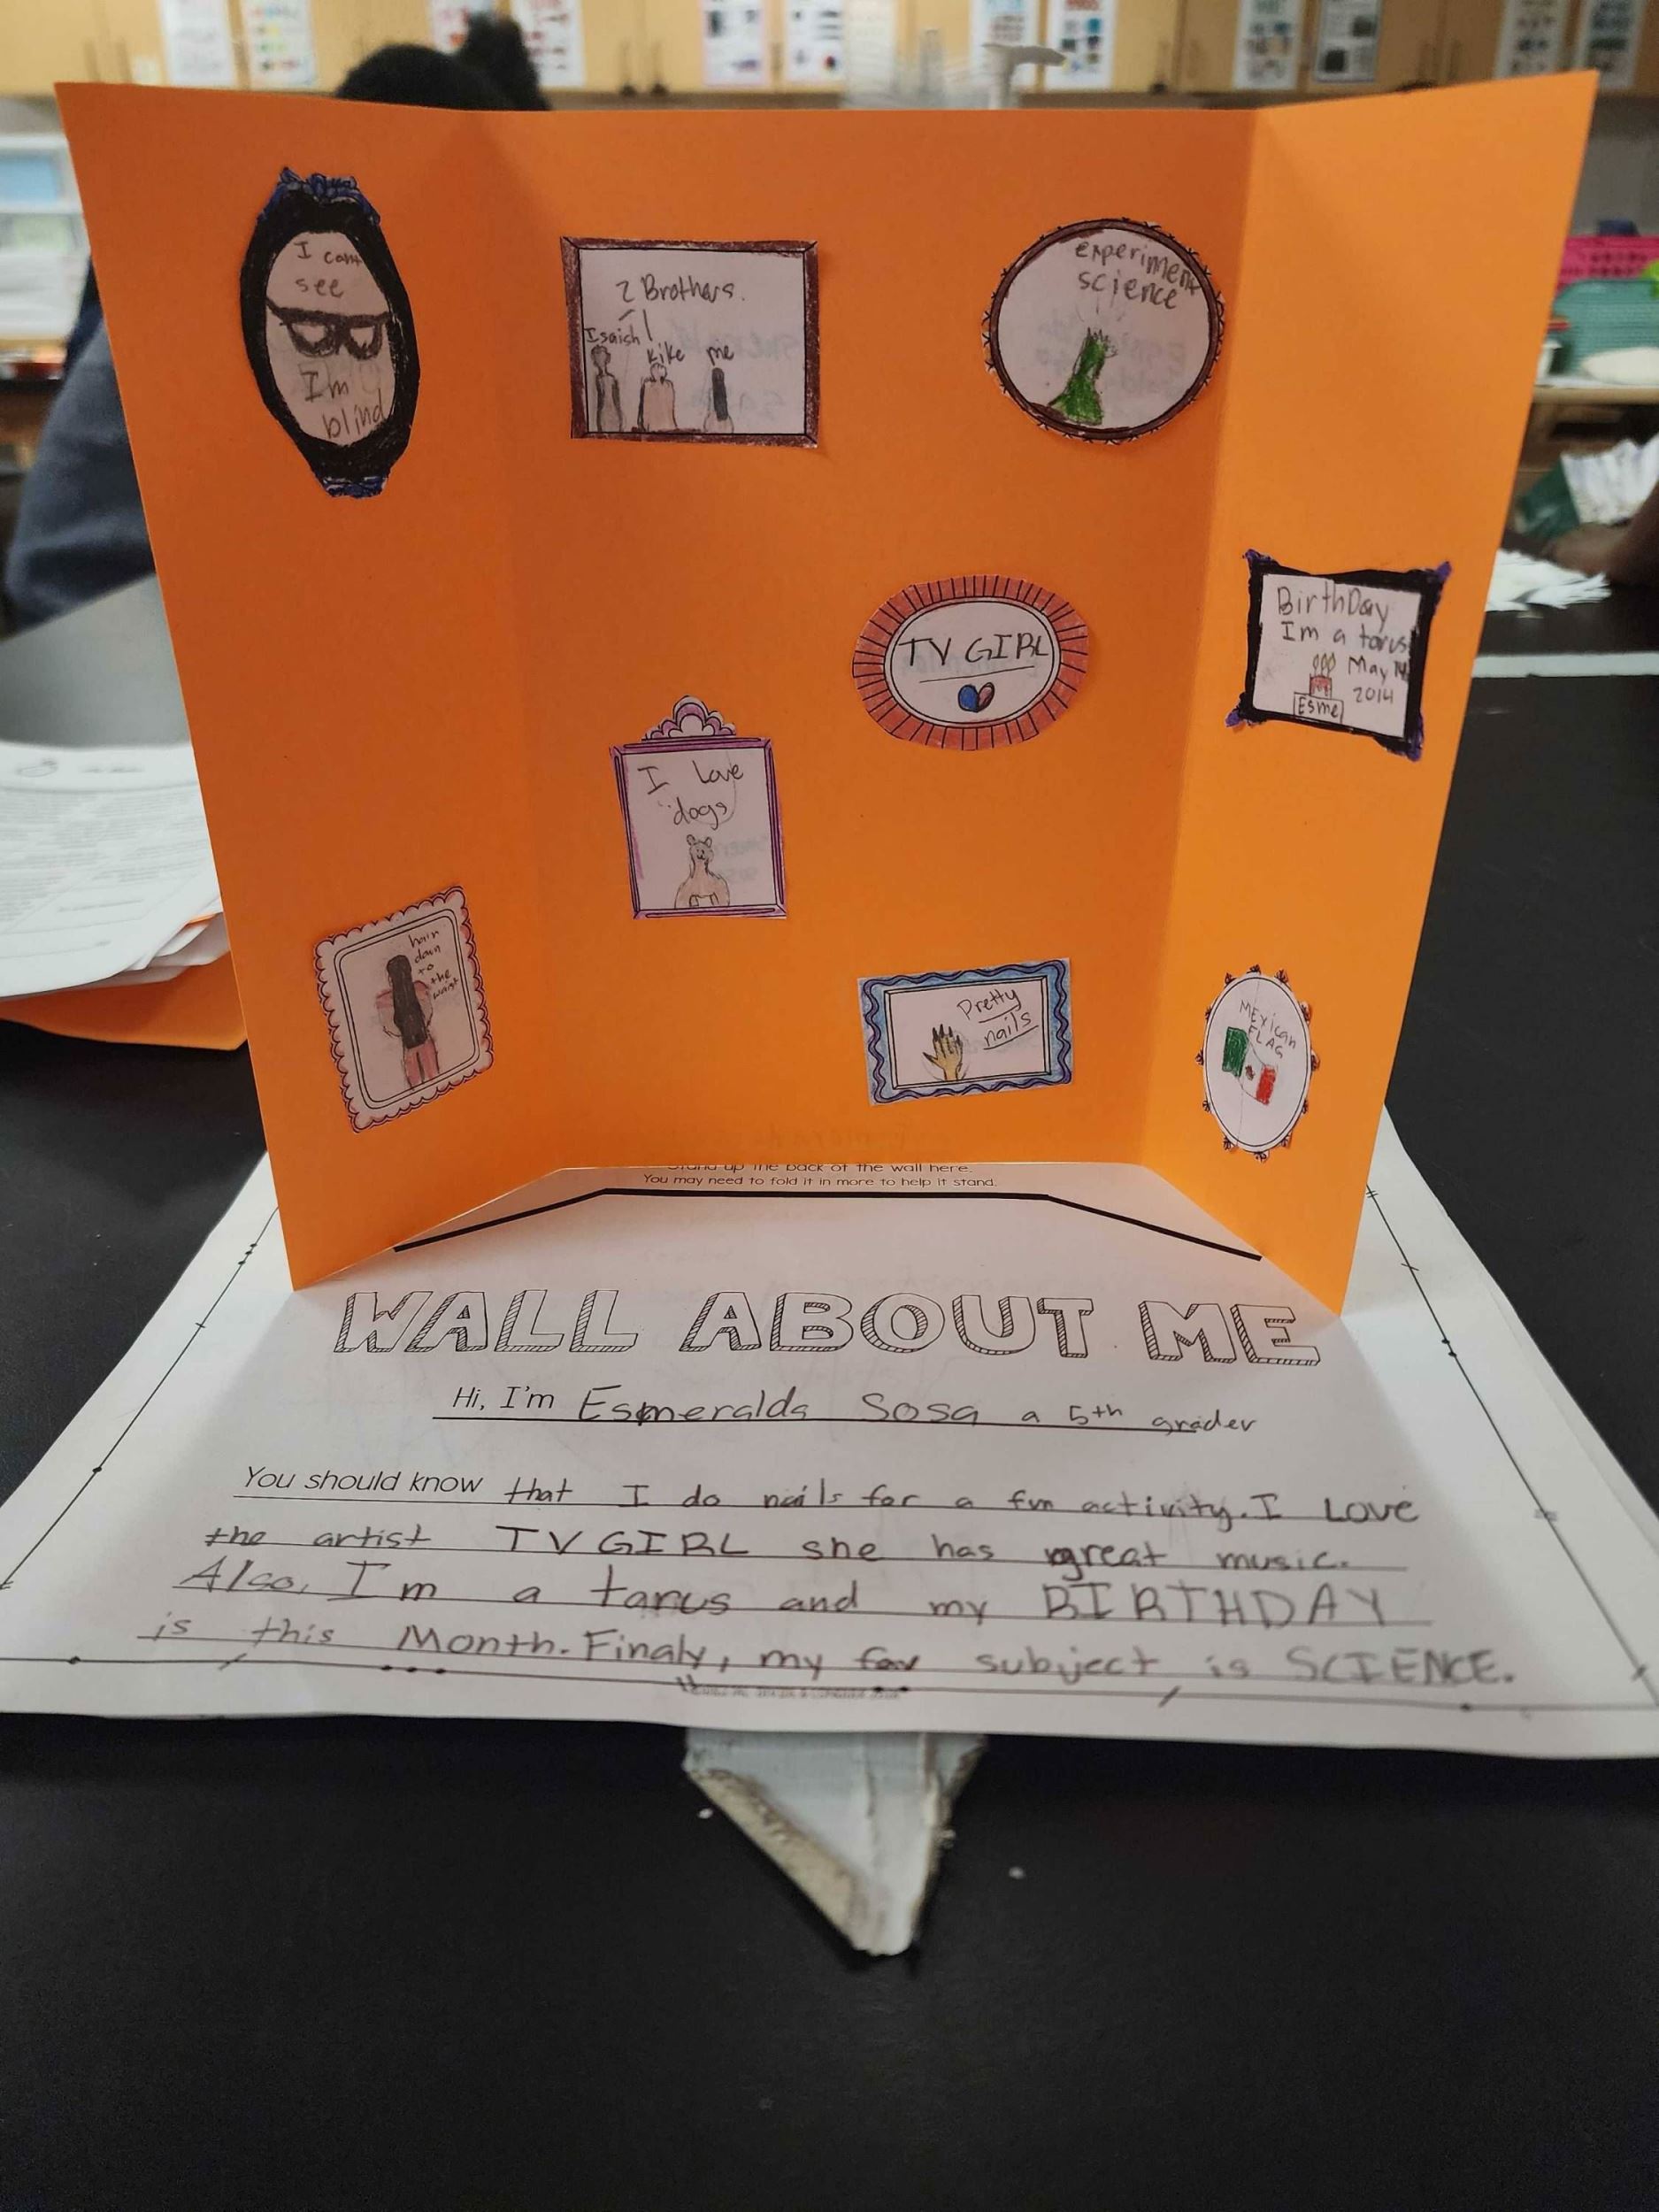 I cant
see
I'm
blind
2 Brothers.
Isaiah
kike
me
experiment
science
TV GIRL
BirthDay
Im a torus
May 14
2014
Esme
I love
dogs
hair
down
to
the
waist
Pretty
nails
MExican
FLAG
Stand up the back of the wall here.
You may need to fold it in more to help it stand.
WALL ABOUT ME
Hi, I'm Esmeralda Sosa a 5th grader
You should know that I do nails for a fun activity. I LOVE
the artist TV GIRL she has great music.
Also, I'm a tarus and my BIRTHDAY
is this Month. Finaly, my fav subject is SCIENCE.